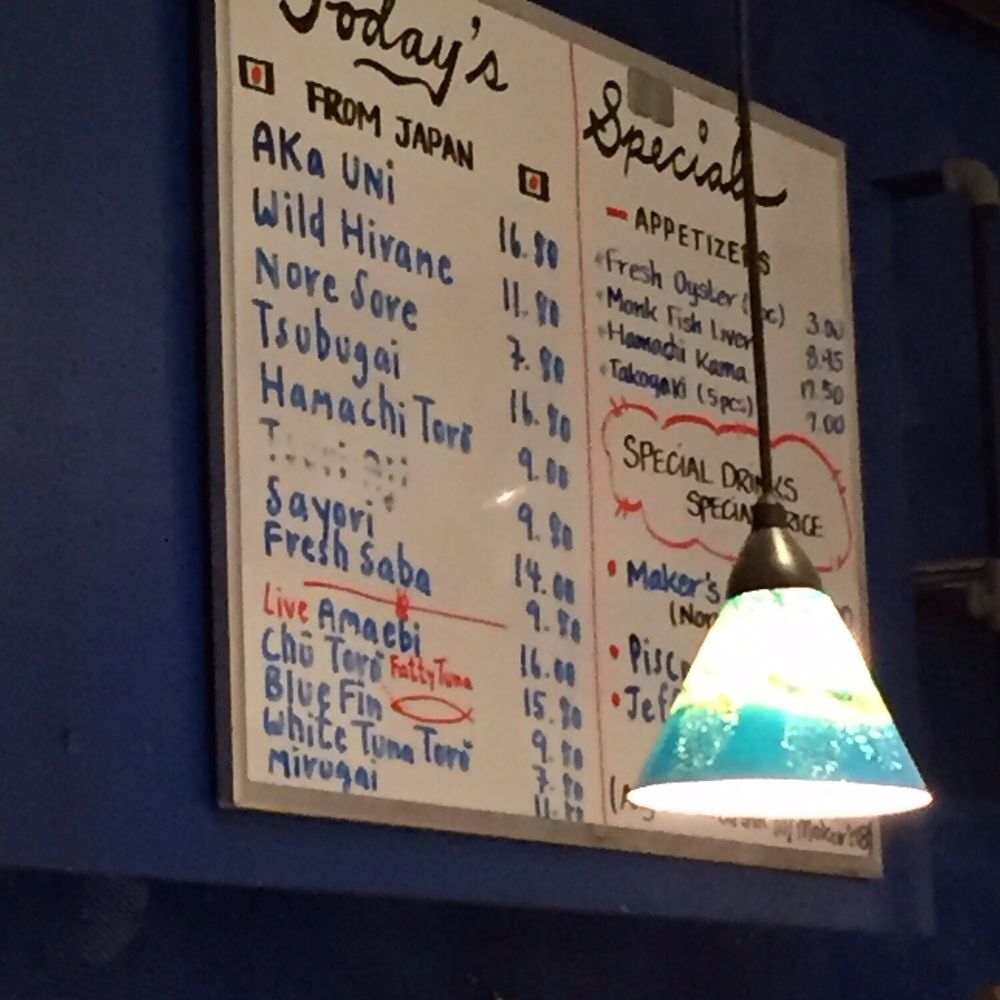 Today's
FROM JAPAN
AKa UNi 16.80
Wild Hirame 11.80
Nore Sore 7.80
Tsubugai 16.80
Hamachi Toro 9.00
9.80
Sayori 14.00
Fresh Saba 9.80
Live Amaebi 16.00
Chū Toro Fatty Tuna 15.80
Blue Fin 9.80
White Tuna Toro 7.80
Mirugai 11.80
Specials
APPETIZERS
Fresh Oyster ( pc) 3.00
Monk Fish Liver 8.95
Hamachi Kama 17.50
Takoyaki (5pcs) 7.00
SPECIAL DRINKS
SPECIAL PRICE
Maker's